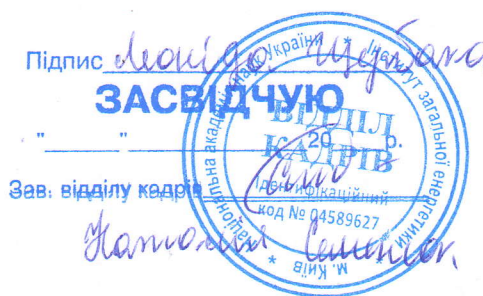 Підпис Леоніда
ЗАСВІДЧУЮ
" " 20 р.
Зав. відділу кадрів
Наталія
Національна академія наук України * Інститут загальної енергетики * м. Київ *
ВІДДІЛ
КАДРІВ
Ідентифікаційний
код № 04589627